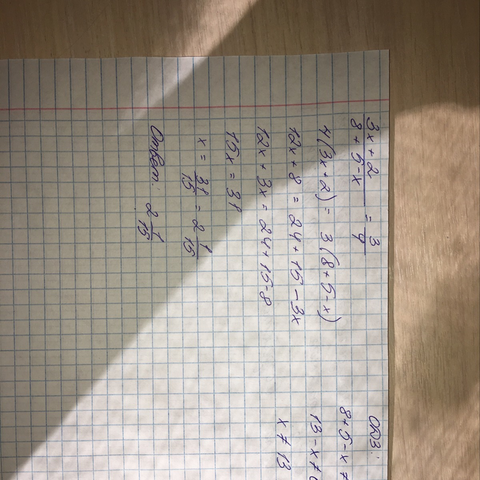 (3x + 2)/(8 + 5 - x) = 3/4
4(3x + 2) = 3(8 + 5 - x)
12x + 8 = 24 + 15 - 3x
12x + 3x = 24 + 15 - 8
15x = 31
x = 31/15 = 2 1/15
Ответ: 2 1/15
ОДЗ:
8 + 5 - x ≠
13 - x ≠ 0
x ≠ 13